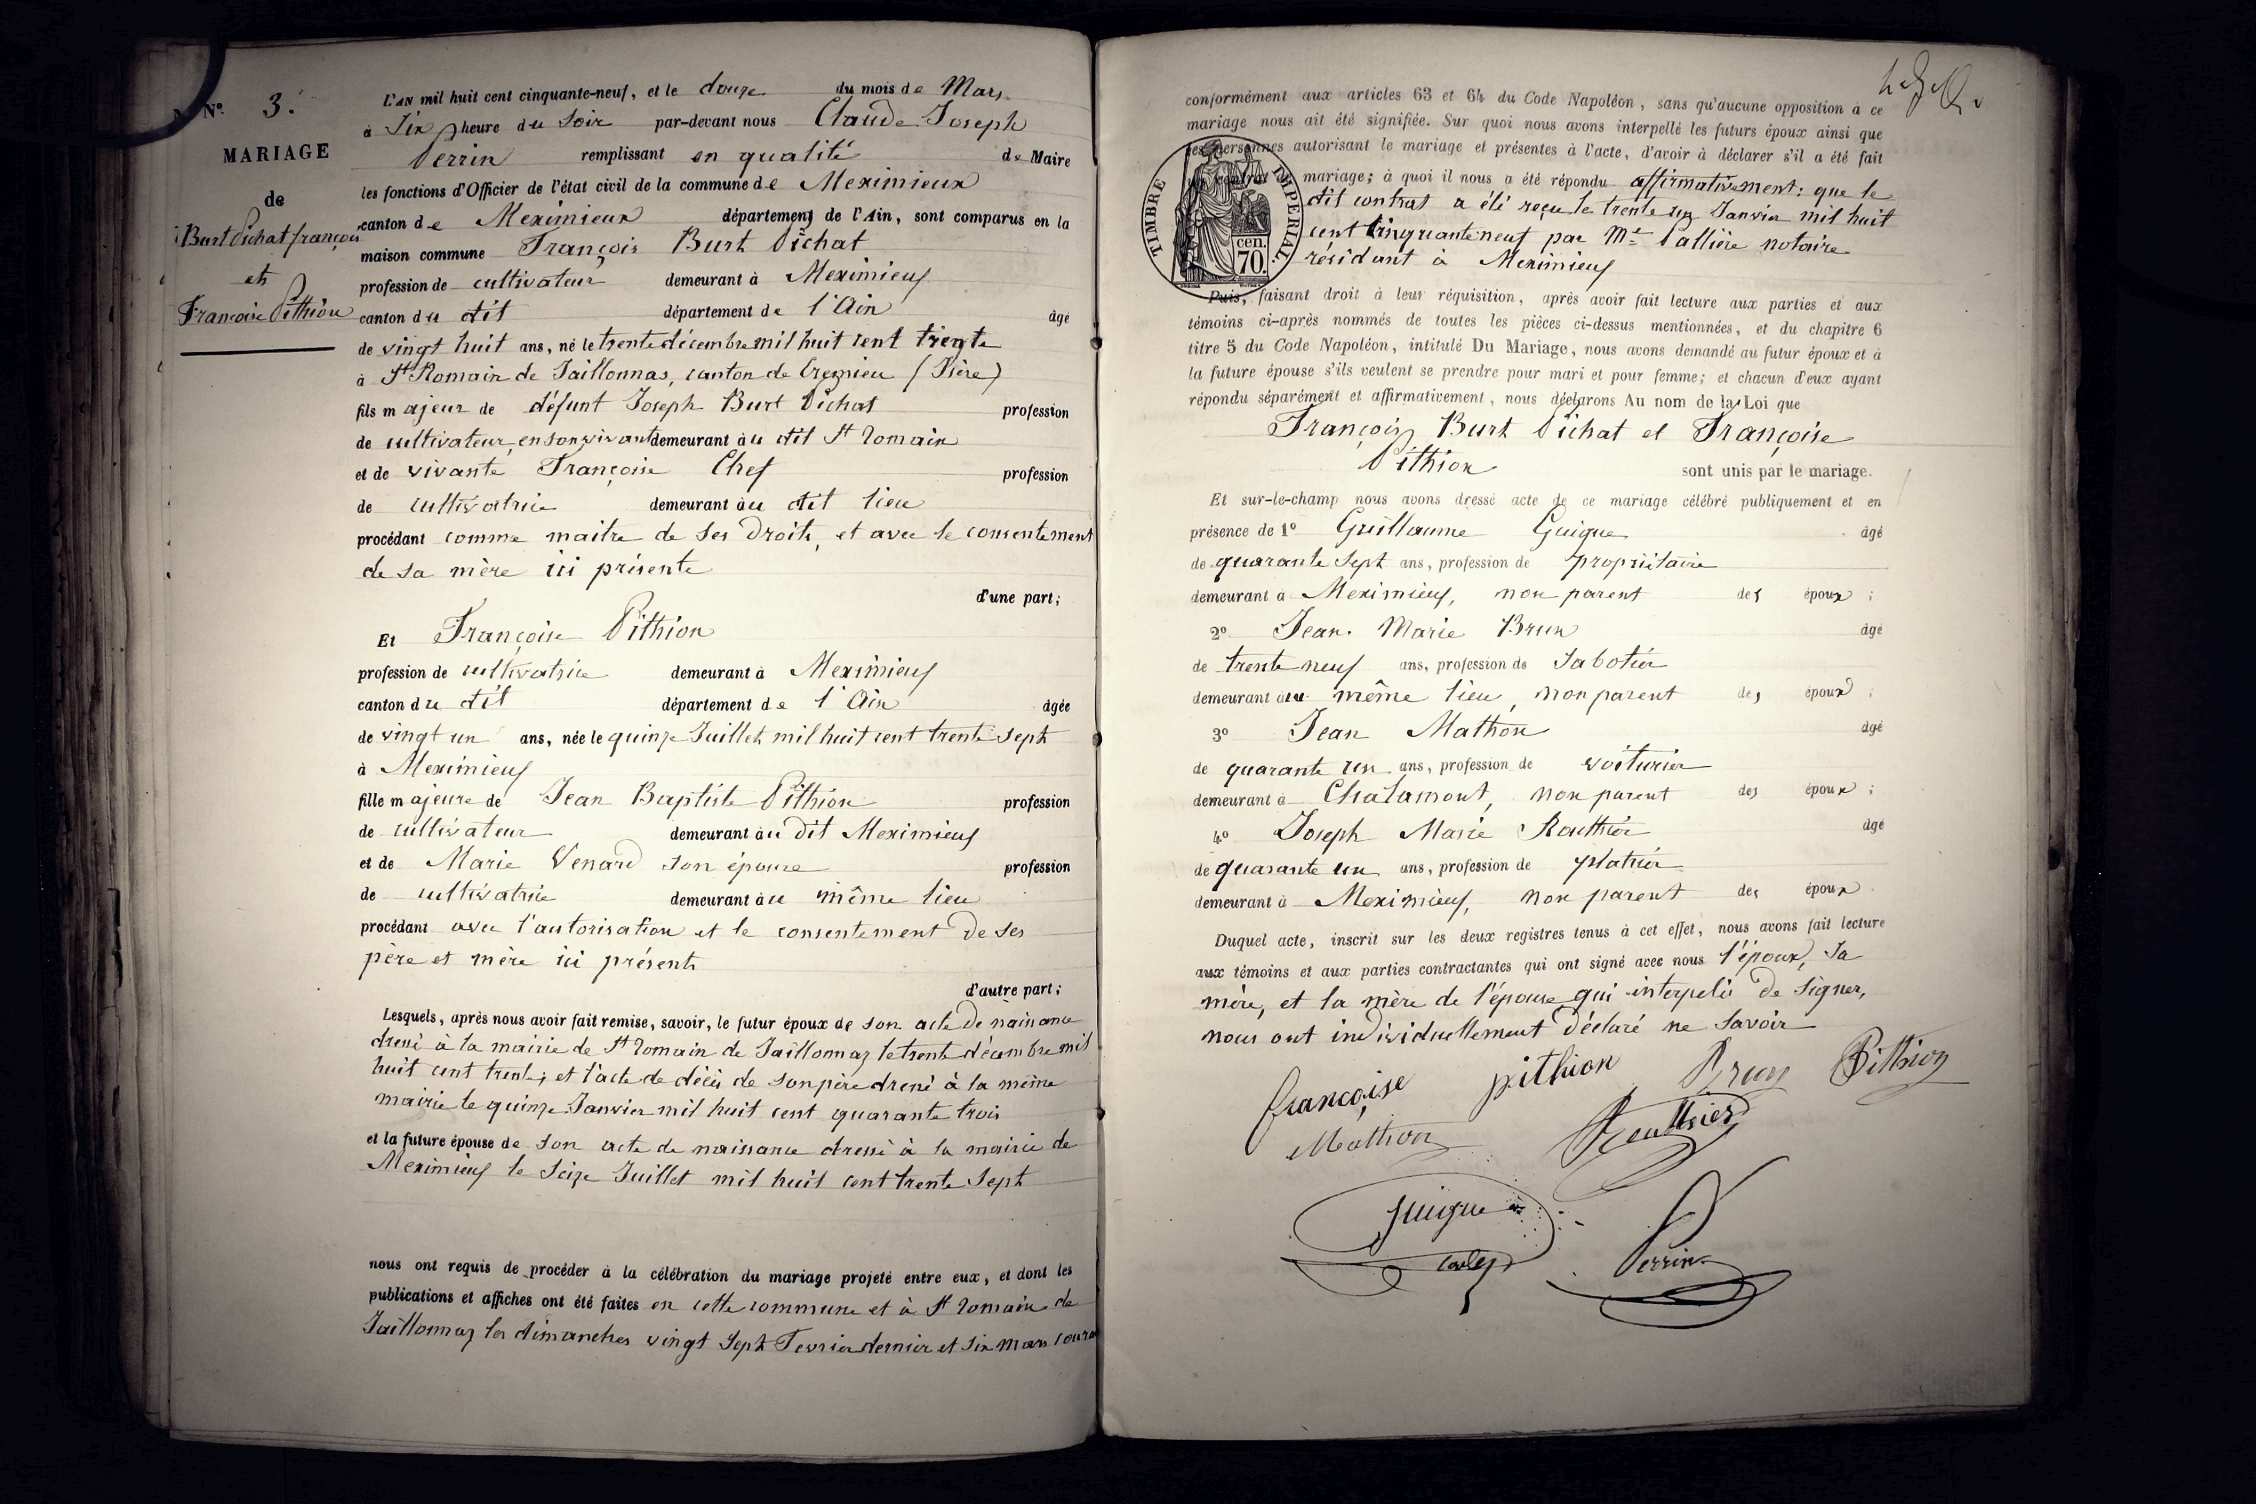 N° 3.
MARIAGE
de
Burt Pichat françois
et
Françoise Pithion
L'AN mil huit cent cinquante-neuf, et le douze du mois de Mars
à Six heure du Soir par-devant nous Claude Joseph
Perrin remplissant en qualité de Maire
les fonctions d'Officier de l'état civil de la commune de Meximieux
canton de Meximieux département de l'Ain, sont comparus en la
maison commune François Burt Pichat
profession de cultivateur demeurant à Meximieux
canton du dit département de l'Ain âgé
de vingt huit ans, né le trente décembre mil huit cent trente
à St Romain de Jaillonnas, canton de Cremieu (Isère)
fils majeur de défunt Joseph Burt Pichat profession
de cultivateur, en son vivant demeurant au dit St Romain
et de vivante Françoise Chef profession
de cultivatrice demeurant au dit lieu
procédant comme maitre de ses droits, et avec le consentement
de sa mère ici présente
d'une part;
Et Françoise Pithion
profession de cultivatrice demeurant à Meximieux
canton du dit département de l'Ain âgée
de vingt un ans, née le quinze Juillet mil huit cent trente sept
à Meximieux
fille majeure de Jean Baptiste Pithion profession
de cultivateur demeurant au dit Meximieux
et de Marie Venard son épouse profession
de cultivatrice demeurant au même lieu
procédant avec l'autorisation et le consentement de ses
père et mère ici présents
d'autre part;
Lesquels, après nous avoir fait remise, savoir, le futur époux de son acte de naissance
dressé à la mairie de St Romain de Jaillonnaz le trente décembre mil
huit cent trente; et l'acte de décès de son père dressé à la même
mairie le quinze Janvier mil huit cent quarante trois
et la future épouse de son acte de naissance dressé à la mairie de
Meximieux le Seize Juillet mil huit cent trente Sept
nous ont requis de procéder à la célébration du mariage projeté entre eux, et dont les
publications et affiches ont été faites en cette commune et à St Romain de
Jaillonnaz les dimanches vingt Sept Fevrier dernier et six mars coura
conformément aux articles 63 et 64 du Code Napoléon, sans qu'aucune opposition à ce
mariage nous ait été signifiée. Sur quoi nous avons interpellé les futurs époux ainsi que
les personnes autorisant le mariage et présentes à l'acte, d'avoir à déclarer s'il a été fait
un contrat de mariage; à quoi il nous a été répondu affirmativement: que le
dit contrat a été reçu le trente un Janvier mil huit
cent Cinquante neuf par Me Pallière notaire
résidant à Meximieux
TIMBRE IMPERIAL.
cen.
70.
Puis, faisant droit à leur réquisition, après avoir fait lecture aux parties et aux
témoins ci-après nommés de toutes les pièces ci-dessus mentionnées, et du chapitre 6
titre 5 du Code Napoléon, intitulé Du Mariage, nous avons demandé au futur époux et à
la future épouse s'ils veulent se prendre pour mari et pour femme; et chacun d'eux ayant
répondu séparément et affirmativement, nous déclarons Au nom de la Loi que
François Burt Pichat et Françoise
Pithion sont unis par le mariage.
Et sur-le-champ nous avons dressé acte de ce mariage célébré publiquement et en
présence de 1° Guillaume Guigue âgé
de quarante Sept ans, profession de propriétaire
demeurant à Meximieux, non parent des époux;
2° Jean Marie Brun âgé
de trente neuf ans, profession de Sabotier
demeurant au même lieu, non parent des époux;
3° Jean Mathon âgé
de quarante un ans, profession de voiturier
demeurant à Chalamont, non parent des époux;
4° Joseph Marie Routhier âgé
de quarante un ans, profession de platrier
demeurant à Meximieux, non parent des époux
Duquel acte, inscrit sur les deux registres tenus à cet effet, nous avons fait lecture
aux témoins et aux parties contractantes qui ont signé avec nous l'époux, Sa
mère, et la mère de l'épouse qui interpelés de Signer,
nous ont individuellement déclaré ne Savoir
françoise pithion Brun Pithion
Mathon Routhier
guigue
Perrin